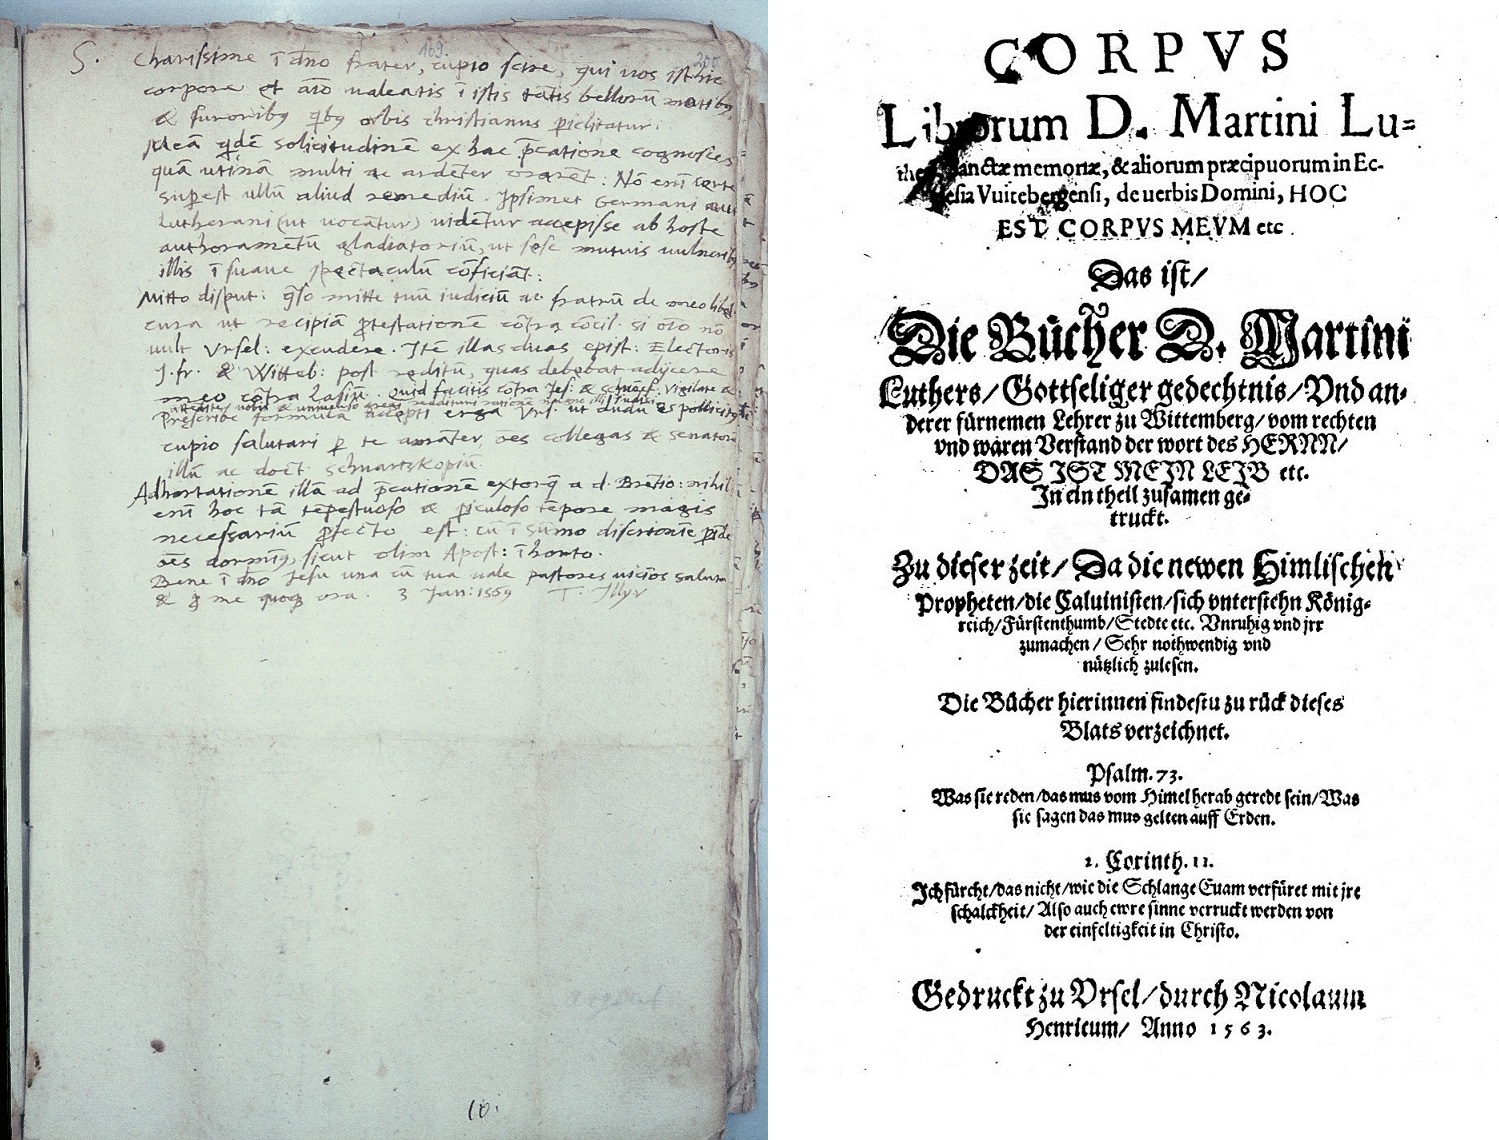 S. Charissime ĩ dño frater, cupio scire, qui uos isthic
corpore et aĩo ualeatis ĩ istis tãtis bellorũ motibꝫ
& furoribꝫ qͥbꝫ orbis christianus p̱iclitatur.
Meã qͥdẽ solicitudinẽ ex hac p̃catione cognosces
quã utinã multi ac ardẽter orarẽt: Nõ em̃ certe
sup̱est ullũ aliud remediũ. Ipsimet Germani
Lutherani (ut uocãtur) uidẽtur accepisse ab hoste
authoramẽtũ gladiatoriũ, ut sese mutuis uulneribꝫ
illis ĩ suaue spectaculũ cõficiãt.
Mitto disput: q̃so mitte tuũ iudiciũ ac fratrũ de meo
cura ut recipiã p̱testationẽ cõtra cõcil. si oĩo nõ
uult Vrsel: excudere. Itẽ illas duas epist: Electoris
J. fr. & Witteb: post reditũ, quas debebat adijcere
meo cõtra Quid facitis cõtra Jes: & Vigilate &
Prescribe formulã erga Vrs. ut dudũ es pollicitꝫ
cupio salutari p̱ te amãter oẽs collegas & senatorẽ
illũ ac doct. Schuartzkopiũ.
Adhortationẽ illã ad p̃catiõnẽ extorq̃ a d. nihil
em̃ hoc tã tẽpestuoso & p̱iculoso tẽpore magis
necessariũ p̱fecto est: cũ ĩ sũmo discrimine
oẽs dormiꝫ, sicut olim Apost: ĩ horto.
Bene ĩ dño Jesu una cũ tua uale pastores uicĩos saluta
& p̱ me quoqꝫ ora. 3 Jan: 1569 T. Illyr
10.
CORPVS
Librorum D. Martini Lu-
the sanctæ memoriæ, & aliorum præcipuorum in Ec-
lesia Vuitebergensi, de uerbis Domini, HOC
EST CORPVS MEVM etc.
Das ist/
Die Bücher D. Martini
Luthers/ Gottseliger gedechtnis/ Vnd an-
derer fürnemen Lehrer zu Wittemberg/ vom rechten
vnd waren Verstand der wort des HERNN/
DAS IST MEIN LEIB etc.
In ein theil zusamen ge-
truckt.
Zu dieser zeit/ Da die newen Himlischen
Propheten/ die Caluinisten/ sich vnterstehn König-
reich/ Fürstenthumb/ Stedte etc. Vnruhig vnd jrr
zumachen/ Sehr nothwendig vnd
nützlich zulesen.
Die Bücher hierinnen findestu zu rück dieses
Blats verzeichnet.
Psalm. 73.
Was sie reden/ das mus vom Himel herab geredt sein/ Was
sie sagen das mus gelten auff Erden.
2. Corinth. 11.
Ich fürcht/ das nicht/ wie die Schlange Euam verfüret mit jre
schalckheit/ Also auch ewre sinne verruckt werden von
der einfeltigkeit in Christo.
Gedruckt zu Vrsel/ durch Nicolaum
Henricum/ Anno 1563.